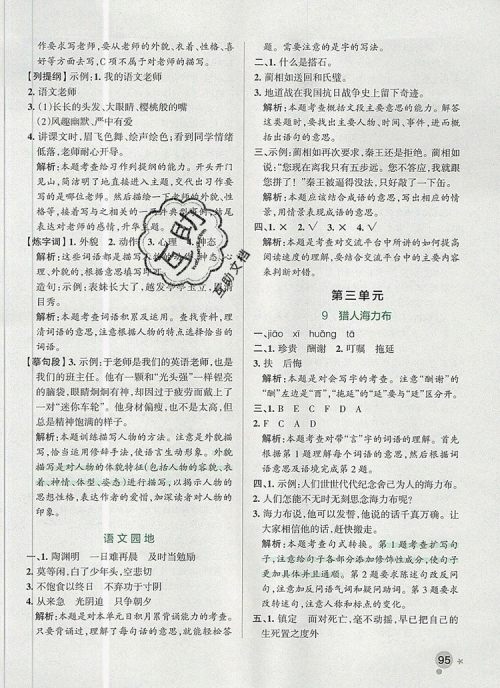 作要求写老师,要从老师的外貌、衣着、性格、喜
好等方面进行描写,C项不属于对老师的描写。
【列提纲】示例:1. 我的语文老师
2. 语文老师
3. (1)长长的头发、大眼睛、樱桃般的嘴
(2)风趣幽默、严中有爱
4. 讲课文时,眉飞色舞、绘声绘色;看到同学情绪
低落,老师耐心开导。
解析:本题考查给习作列提纲的能力。开头开门
见山,简洁明了地直接进入主题,交代出习作要
写的是哪位老师。然后描写老师的外貌、性格
等,接着写与之相关的一
表对老师的情感,升华主题。
【炼字词】1. 外貌 2. 动作 3. 心理 4. 神态
解析:这些词语都是描写
词语。示例:表妹长大了,越发亭亭玉立,
根据要求写句子,
词语的意思,然后根据人物的特点选择恰当的
词语。
【摹句段】3. 示例:于老师是我们的英语老师,也是
我们的班主任。他有一颗和“光头强”一样锃亮
的脑袋,眼睛炯炯有神,却因过于疲劳而戴上了
一对“迷你车轮”。他身材高大强壮,但大腹便便,
总是精神饱满。
解析:本题训练描写人物的方法。注意是外貌描
写,恰当运用修辞手法,使语言生动形象。外貌
描写是对人物的体貌特征(包括人物的容貌、衣
着、神情、体型、姿态)进行描写,以揭示人物的
思想性格,表达作者的爱憎,加深读者对人物的
印象。
语文园地
一、1. 陶渊明 一日难再晨 及时当勉励
2. 莫等闲,白了少年头,空悲切
3. 不饱食以终日 不弃功于寸阴
4. 从来急 光阴迫 只争朝夕
解析:本题是对本单元日积月累背诵能力的考查。
只要背诵过,了解每句话的意思,就能轻松解答
题。需要注意的是字的写法。
二、1. 什么是搭石。
2. 蔺相如送回和氏璧。
3. 地道战在我国抗日战争史上留下奇迹。
解析:本题考查概括文段主要意思的能力。解答
这类题时,要找出主要人物、时间、事件,进而概
括出语句的意思。
三、示例:蔺相如再次要求,秦王还是拒绝。蔺相如
说:“您现在离我只有五步远。您不答应,我就跟
您拼了!”秦王被逼得没法,只好敲了敲缶。
解析:本题应该结合成语的意思,写出相应的情
景,情景描写符合成语意思即可。
四、1. × 2. √ 3. √ 4. ×
解析:本题考查对交流平台中所讲的如何提高
阅读速度的理解,要结合交流平台中的主要内
容来判断对错。
第三单元
9 猎人海力布
一、jiāo xī huǎng tā
二、1. 珍贵 酬谢 2. 叮嘱 拖延
3. 扶 后悔
解析:本题是对会写字的考查。注意“酬谢”的
“酬”左边是“酉”;“拖延”的“延”要与“廷”区分开。
三、1. B E C F D A
2. F C A D
解析:本题考查对带“言”字的词语的理解。首先,
根据第1题理解每个词语的意思,然后根据语言
环境选择完成第2题。
四、1. 示例:人们世世代代纪念舍己为人的海力布。
2. 人们怎能不无时无刻思念海力布呢?
3. 海力布说,他说的话千真万确。他急得掉了泪。让
大家相信他的话,赶快搬走。
解析:本题考查句式转换。第1题考查扩写句
子,注意给句子各部分添加修饰性成分,使句子
更加具体并且通顺。第2题要求陈述句改反问
句,注意添加反问语气和疑问助词。第3题要求
改转述句,注意人称和标点的变化。
五、1. 镇定 面对死亡,毫不动摇,早已把把自己的
生死置之度外
95
互助
互助文档